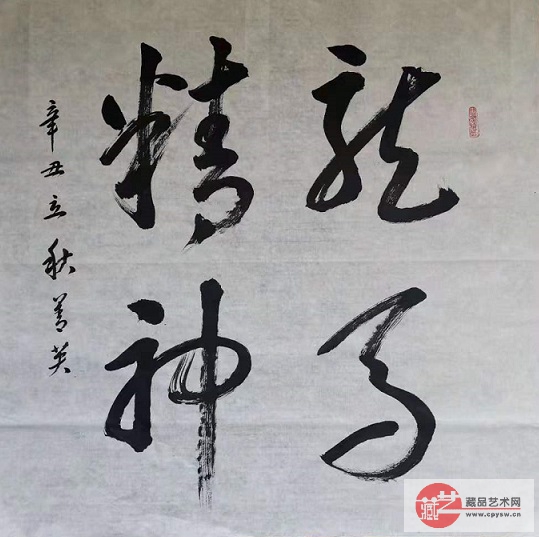 龙马
精神
辛丑立秋善英
藏品艺术网
www.cpysw.cn